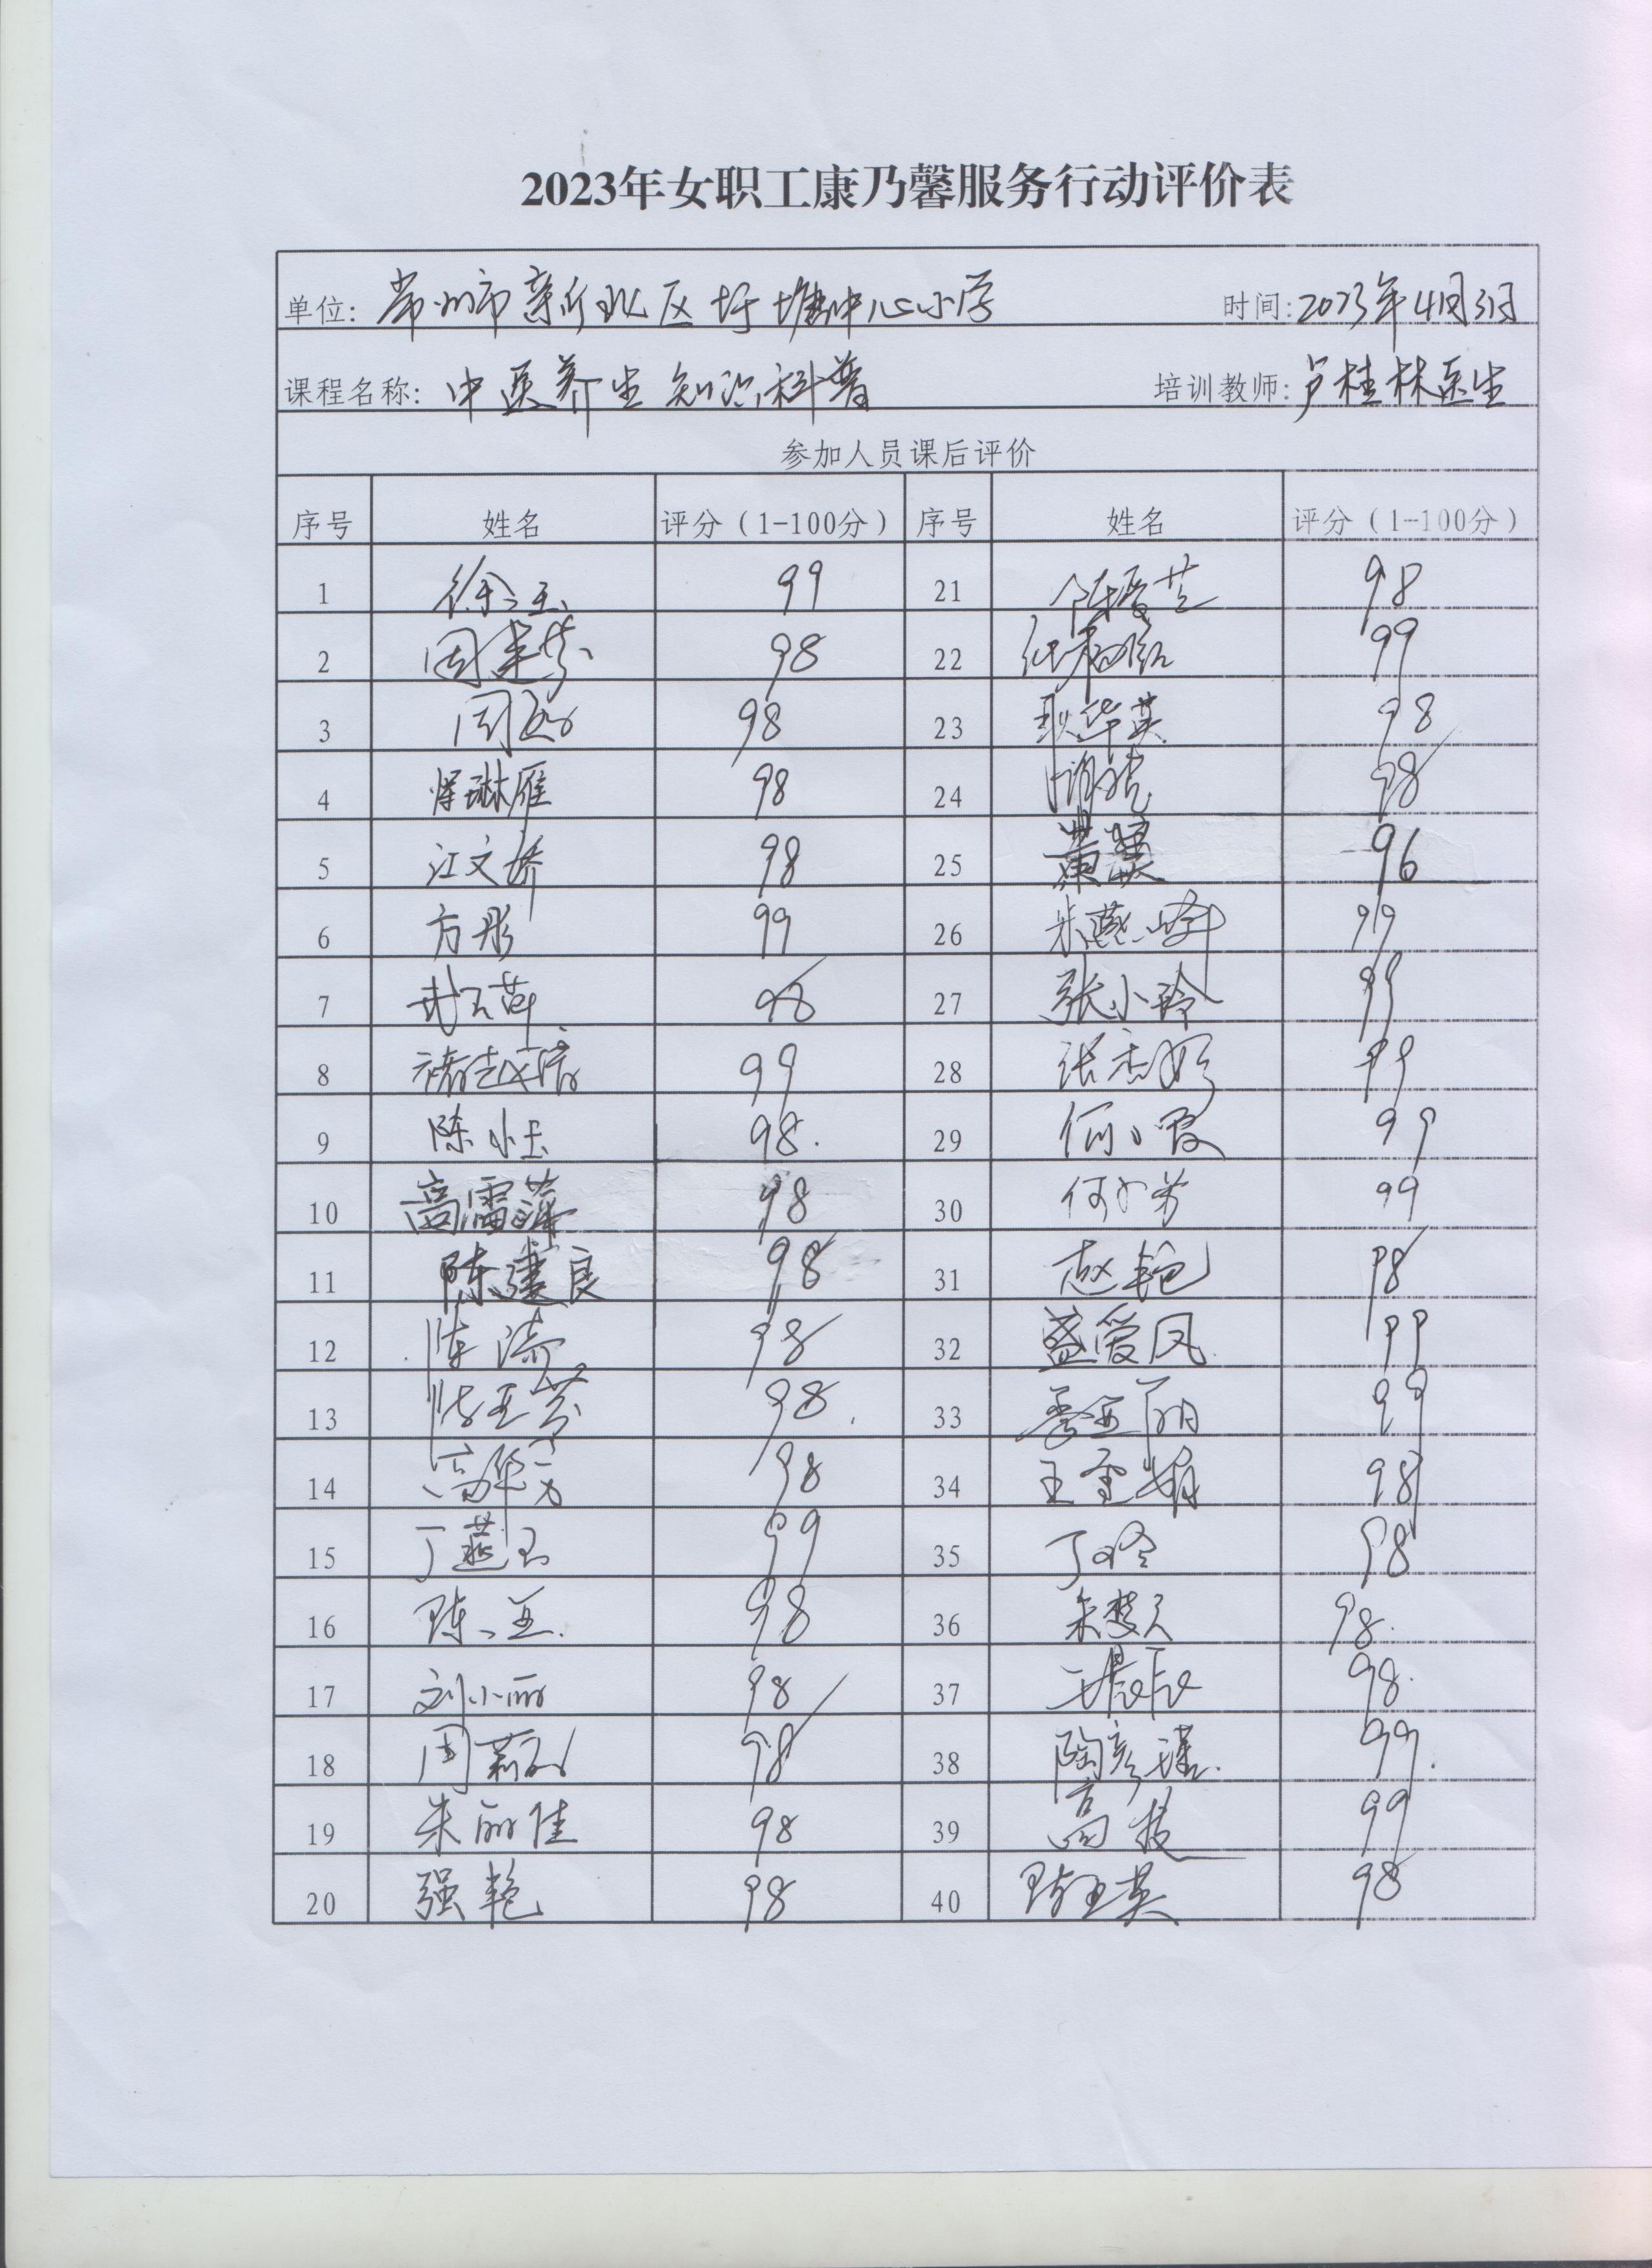 2023年女职工康乃馨服务行动评价表
单位: 常州市新北区圩塘中心小学 时间: 2023年4月3日
课程名称: 中医养生知识科普 培训教师: 卢桂林医生
参加人员课后评价
序号 姓名 评分（1-100分） 序号 姓名 评分（1-100分）
1 徐玉 99 21 98
2 周建芬 98 22 99
3 周 98 23 耿华英 98
4 恽琳雁 98 24 98
5 江文娇 98 25 黄 96
6 方彤 99 26 朱燕峰 99
7 98 27 张小玲 99
8 99 28 张 99
9 陈小玉 98. 29 何霞 99
10 高雷萍 98 30 何小芳 99
11 陈建良 98 31 赵艳 98
12 陈涛 98 32 盛爱凤 99
13 陈亚芬 98. 33 季亚丽 99
14 高华芳 98 34 王雪娟 98
15 丁燕玉 99 35 丁玲 98
16 陈亚. 98 36 朱梦 98.
17 刘小丽 98 37 98.
18 周莉 98 38 陶彦瑾. 99.
19 朱丽佳 98 39 高 99
20 强艳 98 40 陈玉英 98